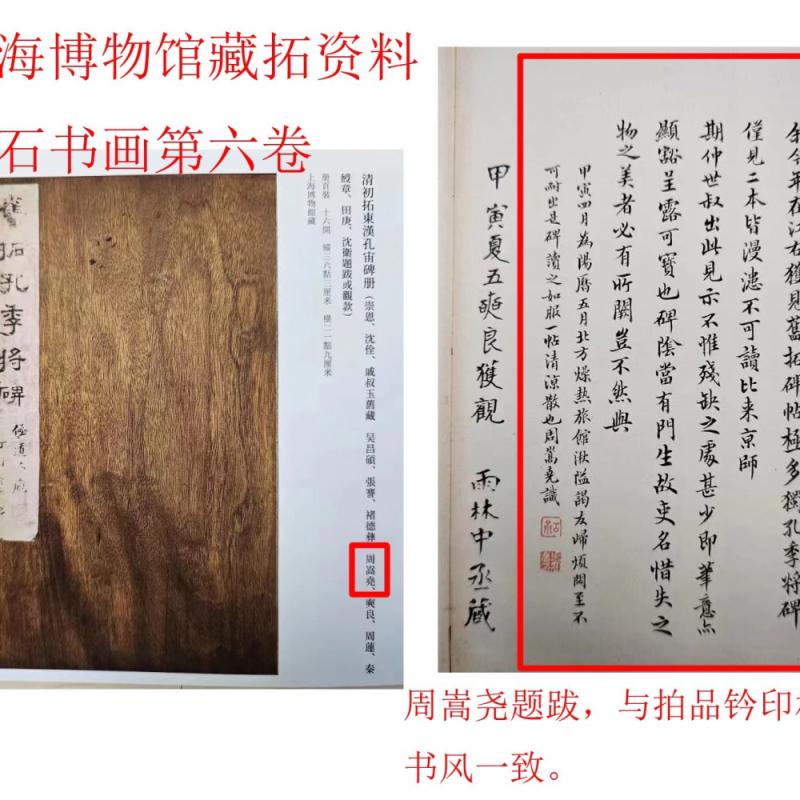 海博物馆藏拓资料
石书画第六卷
舊拓孔季將碑
清初拓東漢孔宙碑册（崇恩、沈佺、戚叔玉舊藏 吴昌碩、張謇、褚德彝、周嵩堯、奭良、周蓮、秦
綬章、田庚、沈衛題跋或觀款）
册頁裝 十六開 縱三六點三厘米 橫二一點九厘米
上海博物館藏
余今年在江右獲見舊拓碑帖極多獨孔季將碑
僅見二本皆漫漶不可讀比来京師
期仲世叔出此見示不惟殘缺之處甚少即筆意亦
顯豁呈露可寶也碑陰當有門生故吏名惜失之
物之美者必有所闕豈不然與
甲寅四月為陽曆五月北方燥熱旅館湫隘謁友歸煩悶至不
可耐出是碑讀之如服一帖清涼散也周嵩堯識
甲寅夏五奭良獲觀 雨林中丞藏
周嵩尧题跋，与拍品钤印
书风一致。